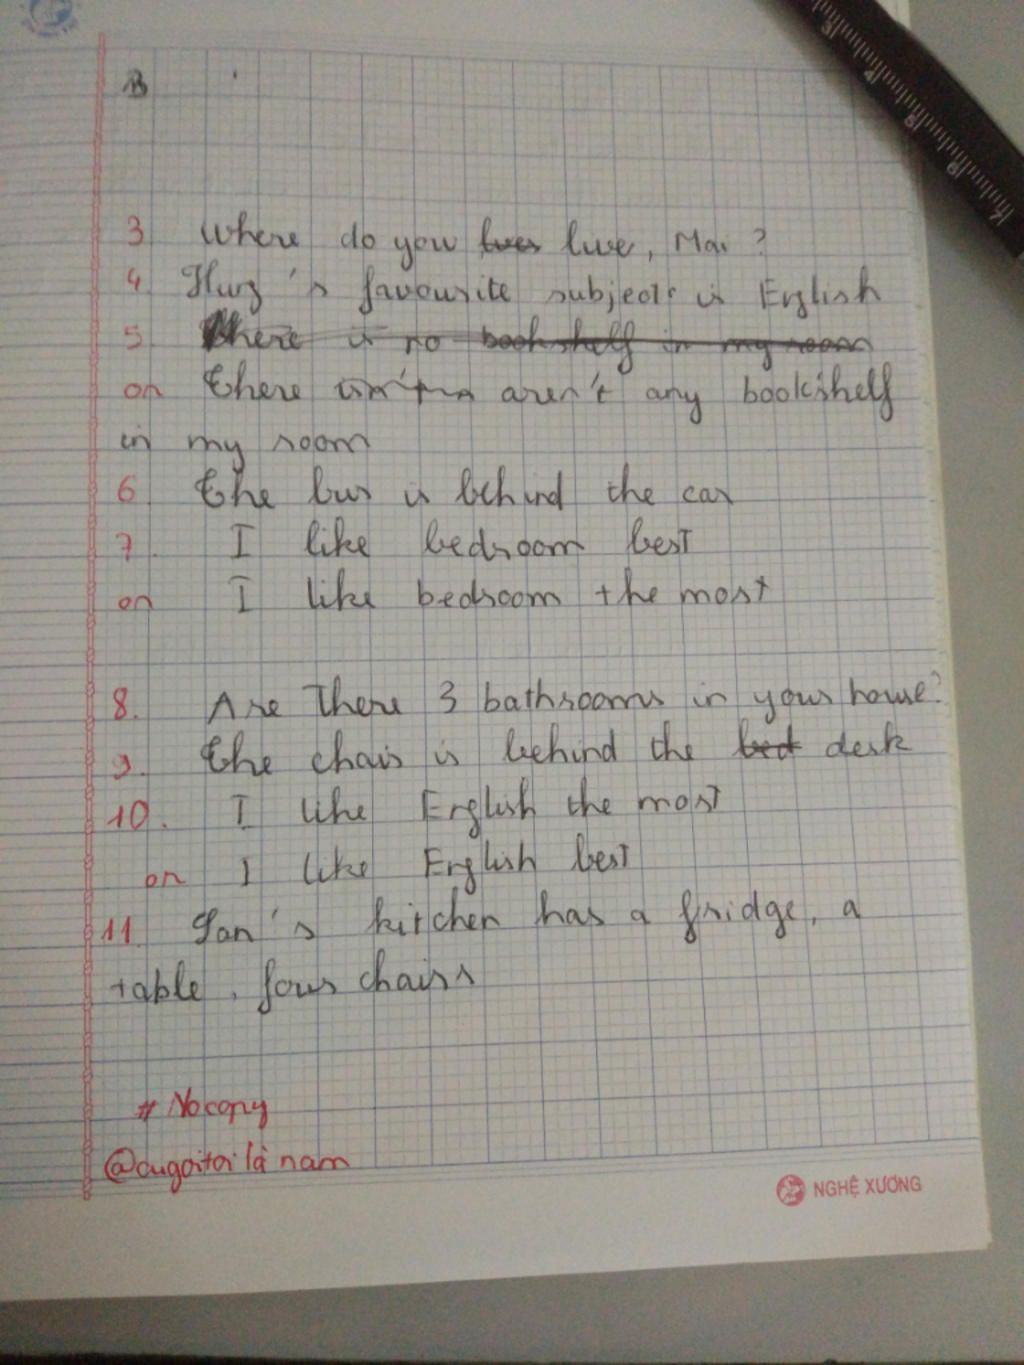 B
3 Where do you lives live, Mai ?
4 Hung 's favourite subject is English
5 There is no bookshelf in my room
or there isn't aren't any bookshelf
in my room
6 The bus is behind the car
7. I like bedroom best
or I like bedroom the most
8. Are There 3 bathrooms in your house?
9. The chair is behind the bed desk
10. I like English the most
or I like English best
11. Lan 's kitchen has a fridge, a
table, four chairs
# No copy
@cugoitoi là nam
NGHỆ XƯƠNG